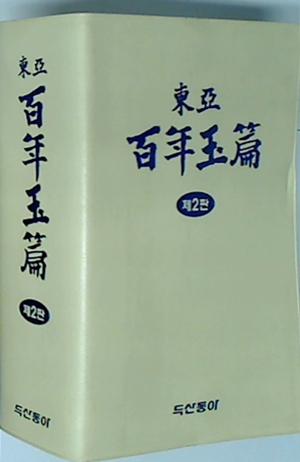 東亞
百年玉篇
제2판
東亞
百年玉篇
제2판
두산동아